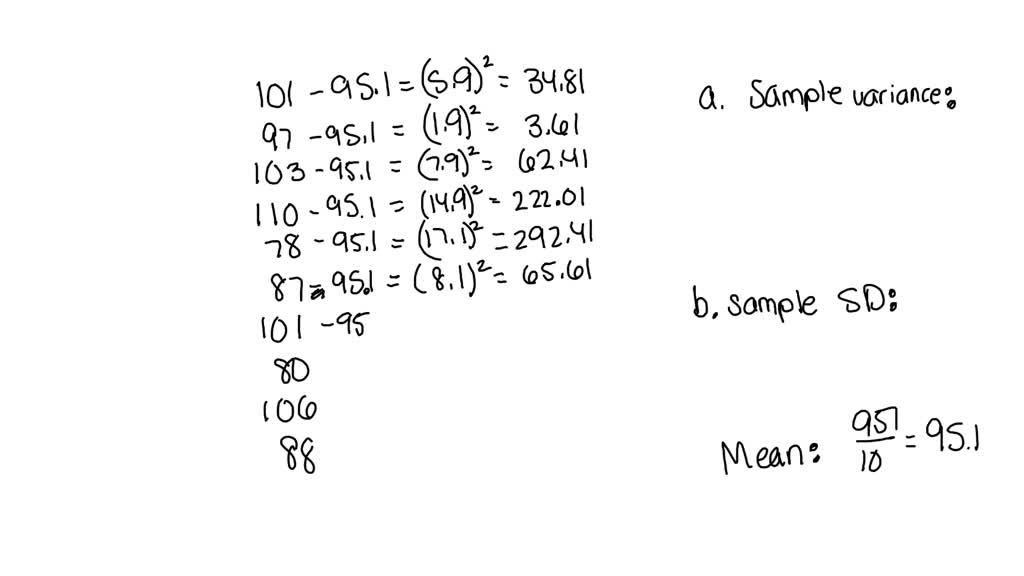 101 - 95.1 = (5.9)² = 34.81
97 - 95.1 = (1.9)² = 3.61
103 - 95.1 = (7.9)² = 62.41
110 - 95.1 = (14.9)² = 222.01
78 - 95.1 = (17.1)² = 292.41
87 - 95.1 = (8.1)² = 65.61
101 - 95
80
106
88
a. Sample variance:
b. Sample SD:
Mean: 951/10 = 95.1